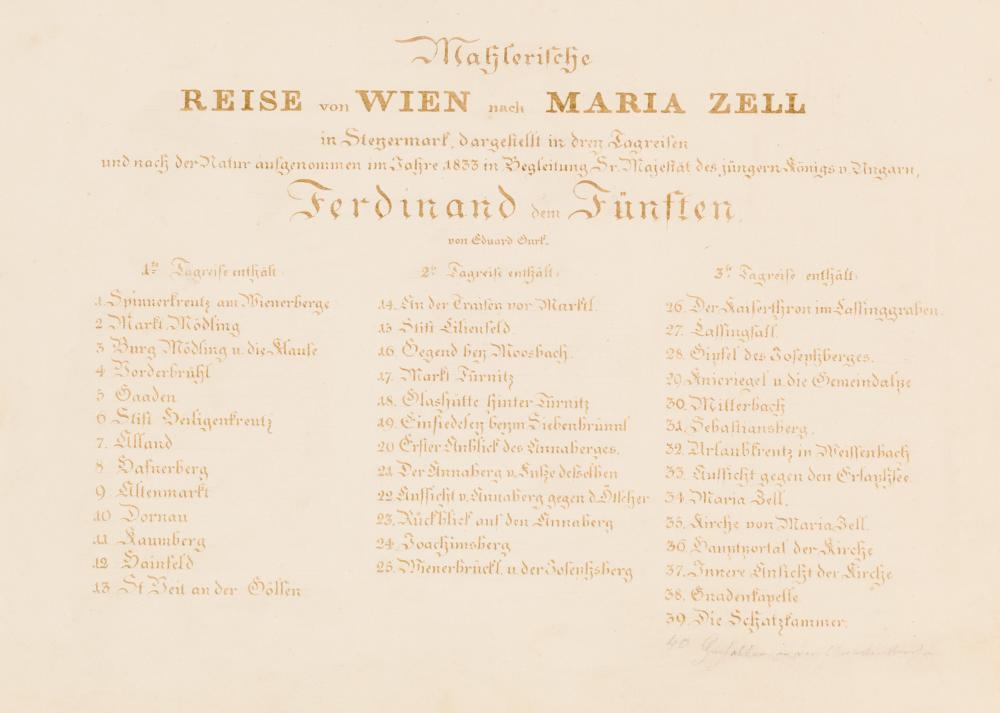 Mahlerische
REISE von WIEN nach MARIA ZELL
in Steyermark, dargestellt in drey Tagreisen
und nach der Natur aufgenommen im Jahre 1833 in Begleitung Sr. Majestät des jüngern Königs v. Ungarn,
Ferdinand dem Fünften,
von Eduard Gurk.
1te Tagreise enthält:
1. Spinnerkreutz am Wienerberge
2 Markt Mödling
3 Burg Mödling u. die Klause
4 Vorderbrühl
5 Gaaden
6 Stift Heiligenkreutz
7. Alland
8 Hafnerberg
9 Altenmarkt
10 Dornau
11 Kaumberg
12 Hainfeld
13 St Veit an der Gölsen
2te Tagreise enthält:
14. An der Traisen vor Marktl.
15 Stift Lilienfeld.
16 Gegend bey Moosbach.
17. Markt Türnitz
18. Glashütte hinter Türnitz
19. Einsiedeley beym Siebenbrünnl
20 Erster Anblick des Annaberges.
21 Der Annaberg v. Fuße desselben
22 Aussicht v. Annaberg gegen d. Ötscher
23. Rückblick auf den Annaberg
24. Joachimsberg
25. Wienerbrückl. u. der Josephsberg
3te Tagreise enthält:
26. Der Kaiserthron im Lassinggraben.
27. Lassingfall.
28. Gipfel des Josephberges.
29. Knieriegel u. die Gemeindalpe
30. Mitterbach
31. Sebastiansberg.
32. Urlaubkreutz in Weissenbach
33. Aussicht gegen den Erlaphsee.
34. Maria Zell.
35. Kirche von Maria Zell.
36. Hauptportal der Kirche
37. Innere Ansicht der Kirche
38. Gnadenkapelle
39. Die Schatzkammer.
40 in der